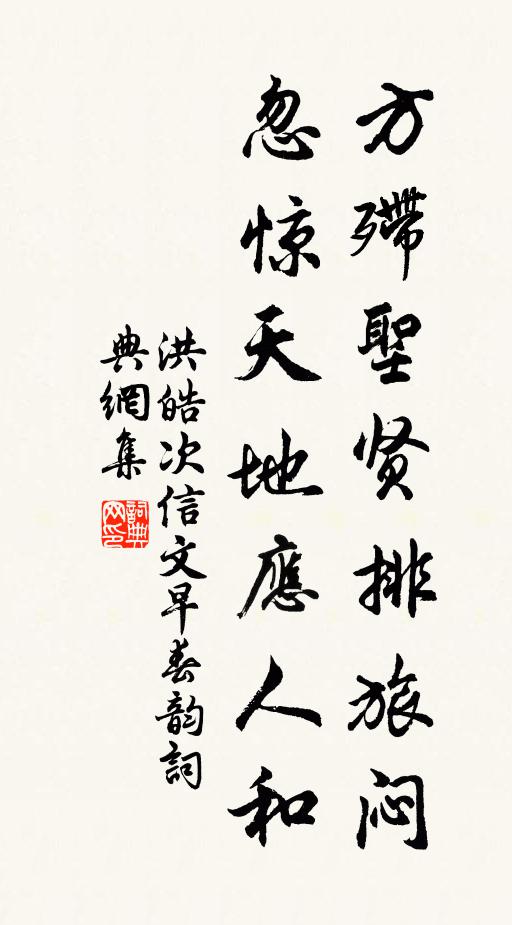 方殢聖贤排旅闷
忽惊天地應人和
洪皓次信文早春韵詞
典網集
詞典网印